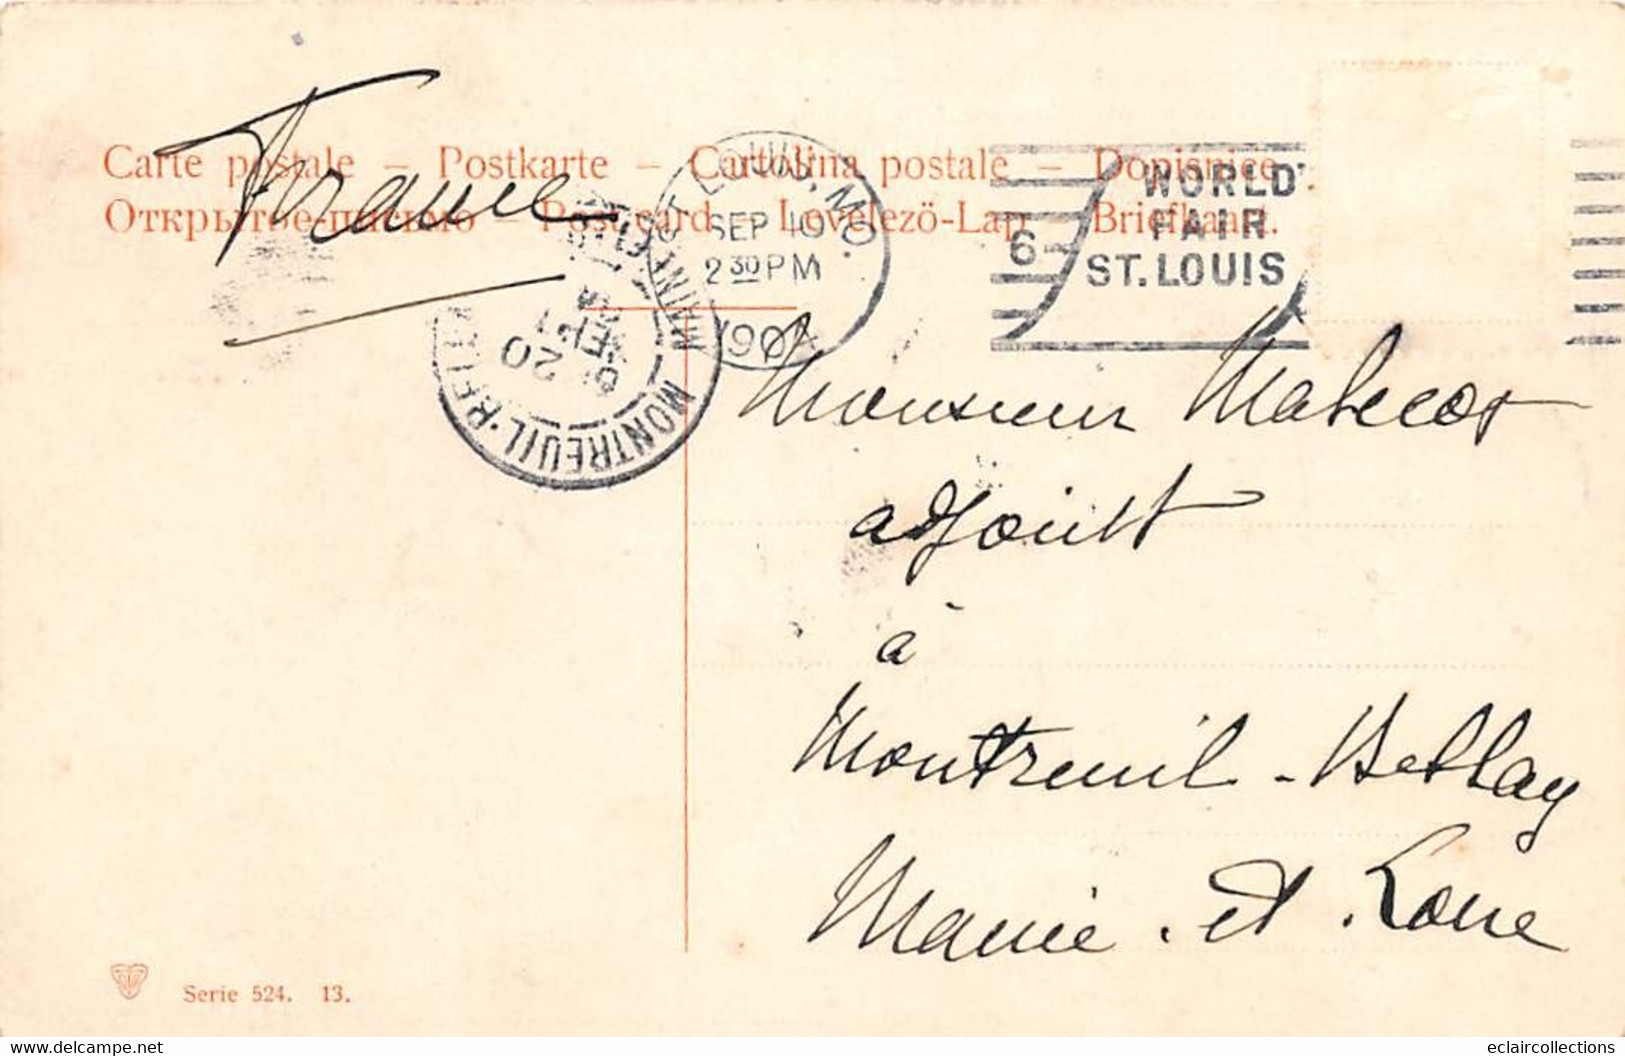 France
Carte postale – Postkarte – Cartolina postale – Dopisnice.
Открытое-письмо – Postcard – Levelezö-Lap – Briefkaart.
ST LOUIS, MO.
SEP 10
2 30 PM
1904
6
WORLD'
FAIR
ST. LOUIS
MONTREUIL-BELLAY
MAINE-ET-
20
SEPT
Monsieur
adjoint
à
Montreuil-Bellay
Maine-et-Loire
Serie 524. 13.
delcampe.net
eclaircollections